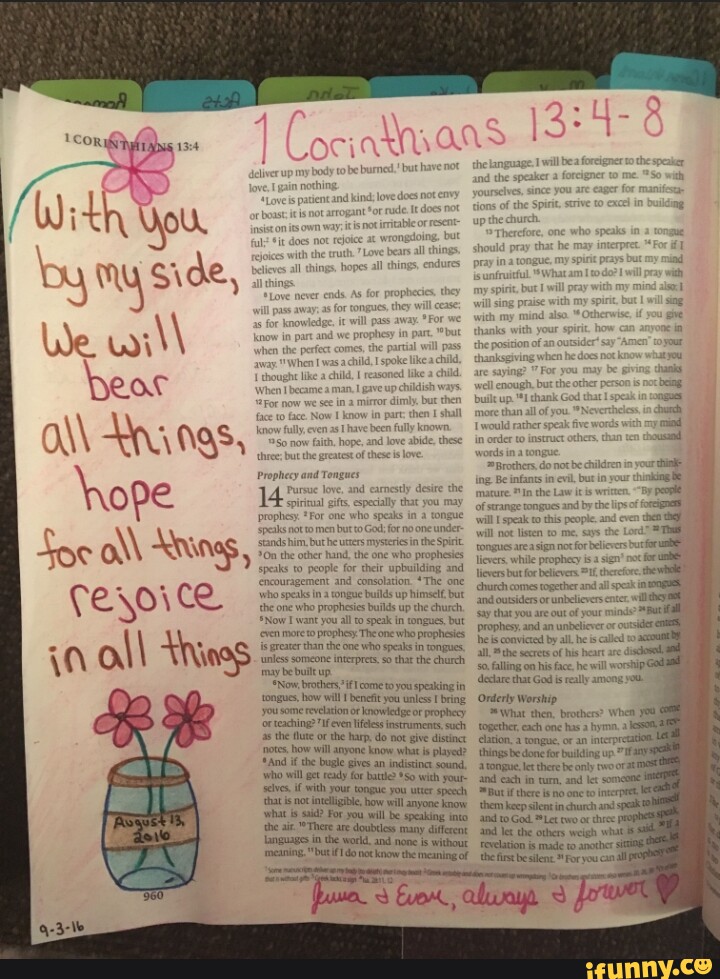 Acts
John
1 CORINTHIANS 13:4
1 Corinthians 13:4-8
With you
by my side,
We will
bear
all things,
hope
for all things,
rejoice
in all things
August 13,
2016
960
9-3-16
deliver up my body to be burned,¹ but have not
love, I gain nothing.
⁴Love is patient and kind; love does not envy
or boast; it is not arrogant ⁵or rude. It does not
insist on its own way; it is not irritable or resent-
ful;² ⁶it does not rejoice at wrongdoing, but
rejoices with the truth. ⁷Love bears all things,
believes all things, hopes all things, endures
all things.
⁸Love never ends. As for prophecies, they
will pass away; as for tongues, they will cease;
as for knowledge, it will pass away. ⁹For we
know in part and we prophesy in part, ¹⁰but
when the perfect comes, the partial will pass
away. ¹¹When I was a child, I spoke like a child,
I thought like a child, I reasoned like a child.
When I became a man, I gave up childish ways.
¹²For now we see in a mirror dimly, but then
face to face. Now I know in part; then I shall
know fully, even as I have been fully known.
¹³So now faith, hope, and love abide, these
three; but the greatest of these is love.
Prophecy and Tongues
14 Pursue love, and earnestly desire the
spiritual gifts, especially that you may
prophesy. ²For one who speaks in a tongue
speaks not to men but to God; for no one under-
stands him, but he utters mysteries in the Spirit.
³On the other hand, the one who prophesies
speaks to people for their upbuilding and
encouragement and consolation. ⁴The one
who speaks in a tongue builds up himself, but
the one who prophesies builds up the church.
⁵Now I want you all to speak in tongues, but
even more to prophesy. The one who prophesies
is greater than the one who speaks in tongues,
unless someone interprets, so that the church
may be built up.
⁶Now, brothers,³ if I come to you speaking in
tongues, how will I benefit you unless I bring
you some revelation or knowledge or prophecy
or teaching? ⁷If even lifeless instruments, such
as the flute or the harp, do not give distinct
notes, how will anyone know what is played?
⁸And if the bugle gives an indistinct sound,
who will get ready for battle? ⁹So with your-
selves, if with your tongue you utter speech
that is not intelligible, how will anyone know
what is said? For you will be speaking into
the air. ¹⁰There are doubtless many different
languages in the world, and none is without
meaning, ¹¹but if I do not know the meaning of
the language, I will be a foreigner to the speaker
and the speaker a foreigner to me. ¹²So with
yourselves, since you are eager for manifesta-
tions of the Spirit, strive to excel in building
up the church.
¹³Therefore, one who speaks in a tongue
should pray that he may interpret. ¹⁴For if I
pray in a tongue, my spirit prays but my mind
is unfruitful. ¹⁵What am I to do? I will pray with
my spirit, but I will pray with my mind also; I
will sing praise with my spirit, but I will sing
with my mind also. ¹⁶Otherwise, if you give
thanks with your spirit, how can anyone in
the position of an outsider⁴ say "Amen" to your
thanksgiving when he does not know what you
are saying? ¹⁷For you may be giving thanks
well enough, but the other person is not being
built up. ¹⁸I thank God that I speak in tongues
more than all of you. ¹⁹Nevertheless, in church
I would rather speak five words with my mind
in order to instruct others, than ten thousand
words in a tongue.
²⁰Brothers, do not be children in your think-
ing. Be infants in evil, but in your thinking be
mature. ²¹In the Law it is written, "By people
of strange tongues and by the lips of foreigners
will I speak to this people, and even then they
will not listen to me, says the Lord." ²²Thus
tongues are a sign not for believers but for unbe-
lievers, while prophecy is a sign⁵ not for unbe-
lievers but for believers. ²³If, therefore, the whole
church comes together and all speak in tongues,
and outsiders or unbelievers enter, will they not
say that you are out of your minds? ²⁴But if all
prophesy, and an unbeliever or outsider enters,
he is convicted by all, he is called to account by
all, ²⁵the secrets of his heart are disclosed, and
so, falling on his face, he will worship God and
declare that God is really among you.
Orderly Worship
²⁶What then, brothers? When you come
together, each one has a hymn, a lesson, a rev-
elation, a tongue, or an interpretation. Let all
things be done for building up. ²⁷If any speak in
a tongue, let there be only two or at most three,
and each in turn, and let someone interpret.
²⁸But if there is no one to interpret, let each of
them keep silent in church and speak to himself
and to God. ²⁹Let two or three prophets speak,
and let the others weigh what is said. ³⁰If a
revelation is made to another sitting there, let
the first be silent. ³¹For you can all prophesy one
Jenna & Evan, always & forever
ifunny.co